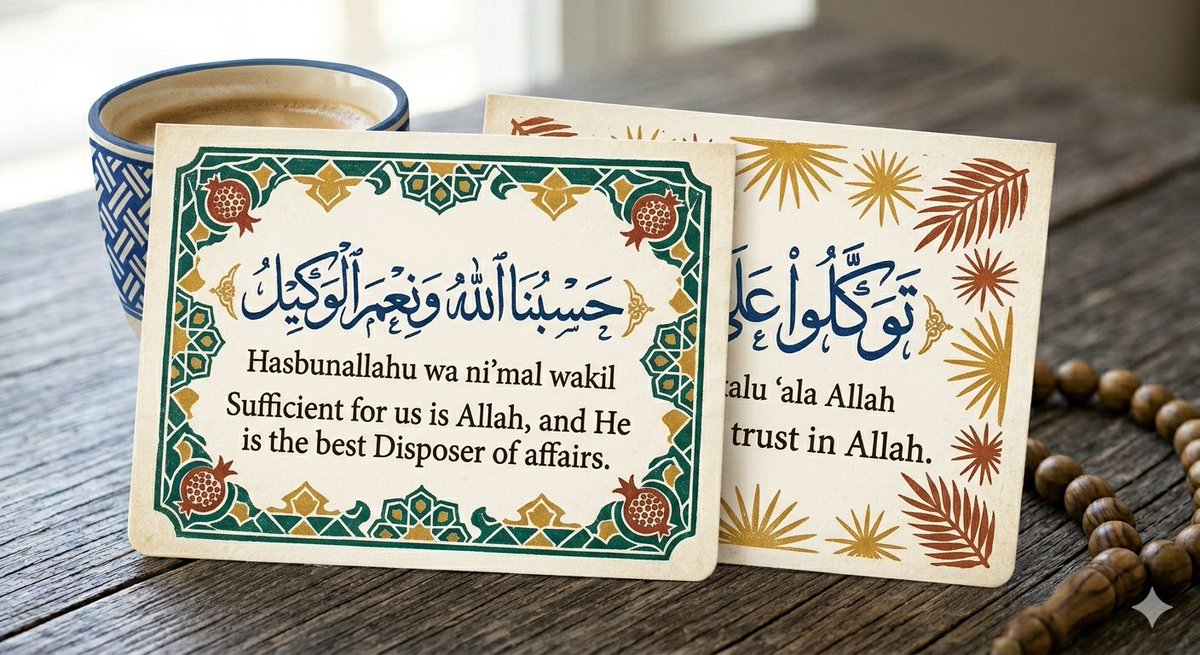 حَسْبُنَا ٱللهُ وَنِعْمَ ٱلْوَكِيْلُ
Hasbunallahu wa ni’mal wakil
Sufficient for us is Allah, and He
is the best Disposer of affairs.
تَوَكَّلُواْ
‘ala Allah
trust in Allah.